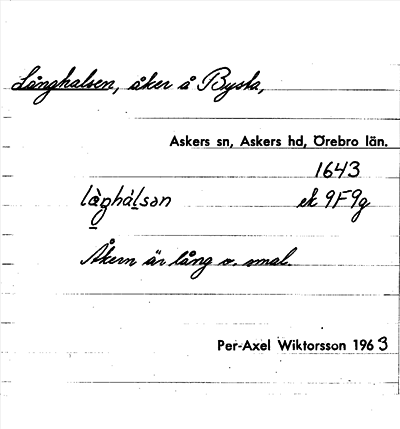 Långhalsen, åker å Bysta,
Askers sn, Askers hd, Örebro län.
1643
làghálsən ek 9F9g
Åkern är lång o. smal.
Per-Axel Wiktorsson 1963